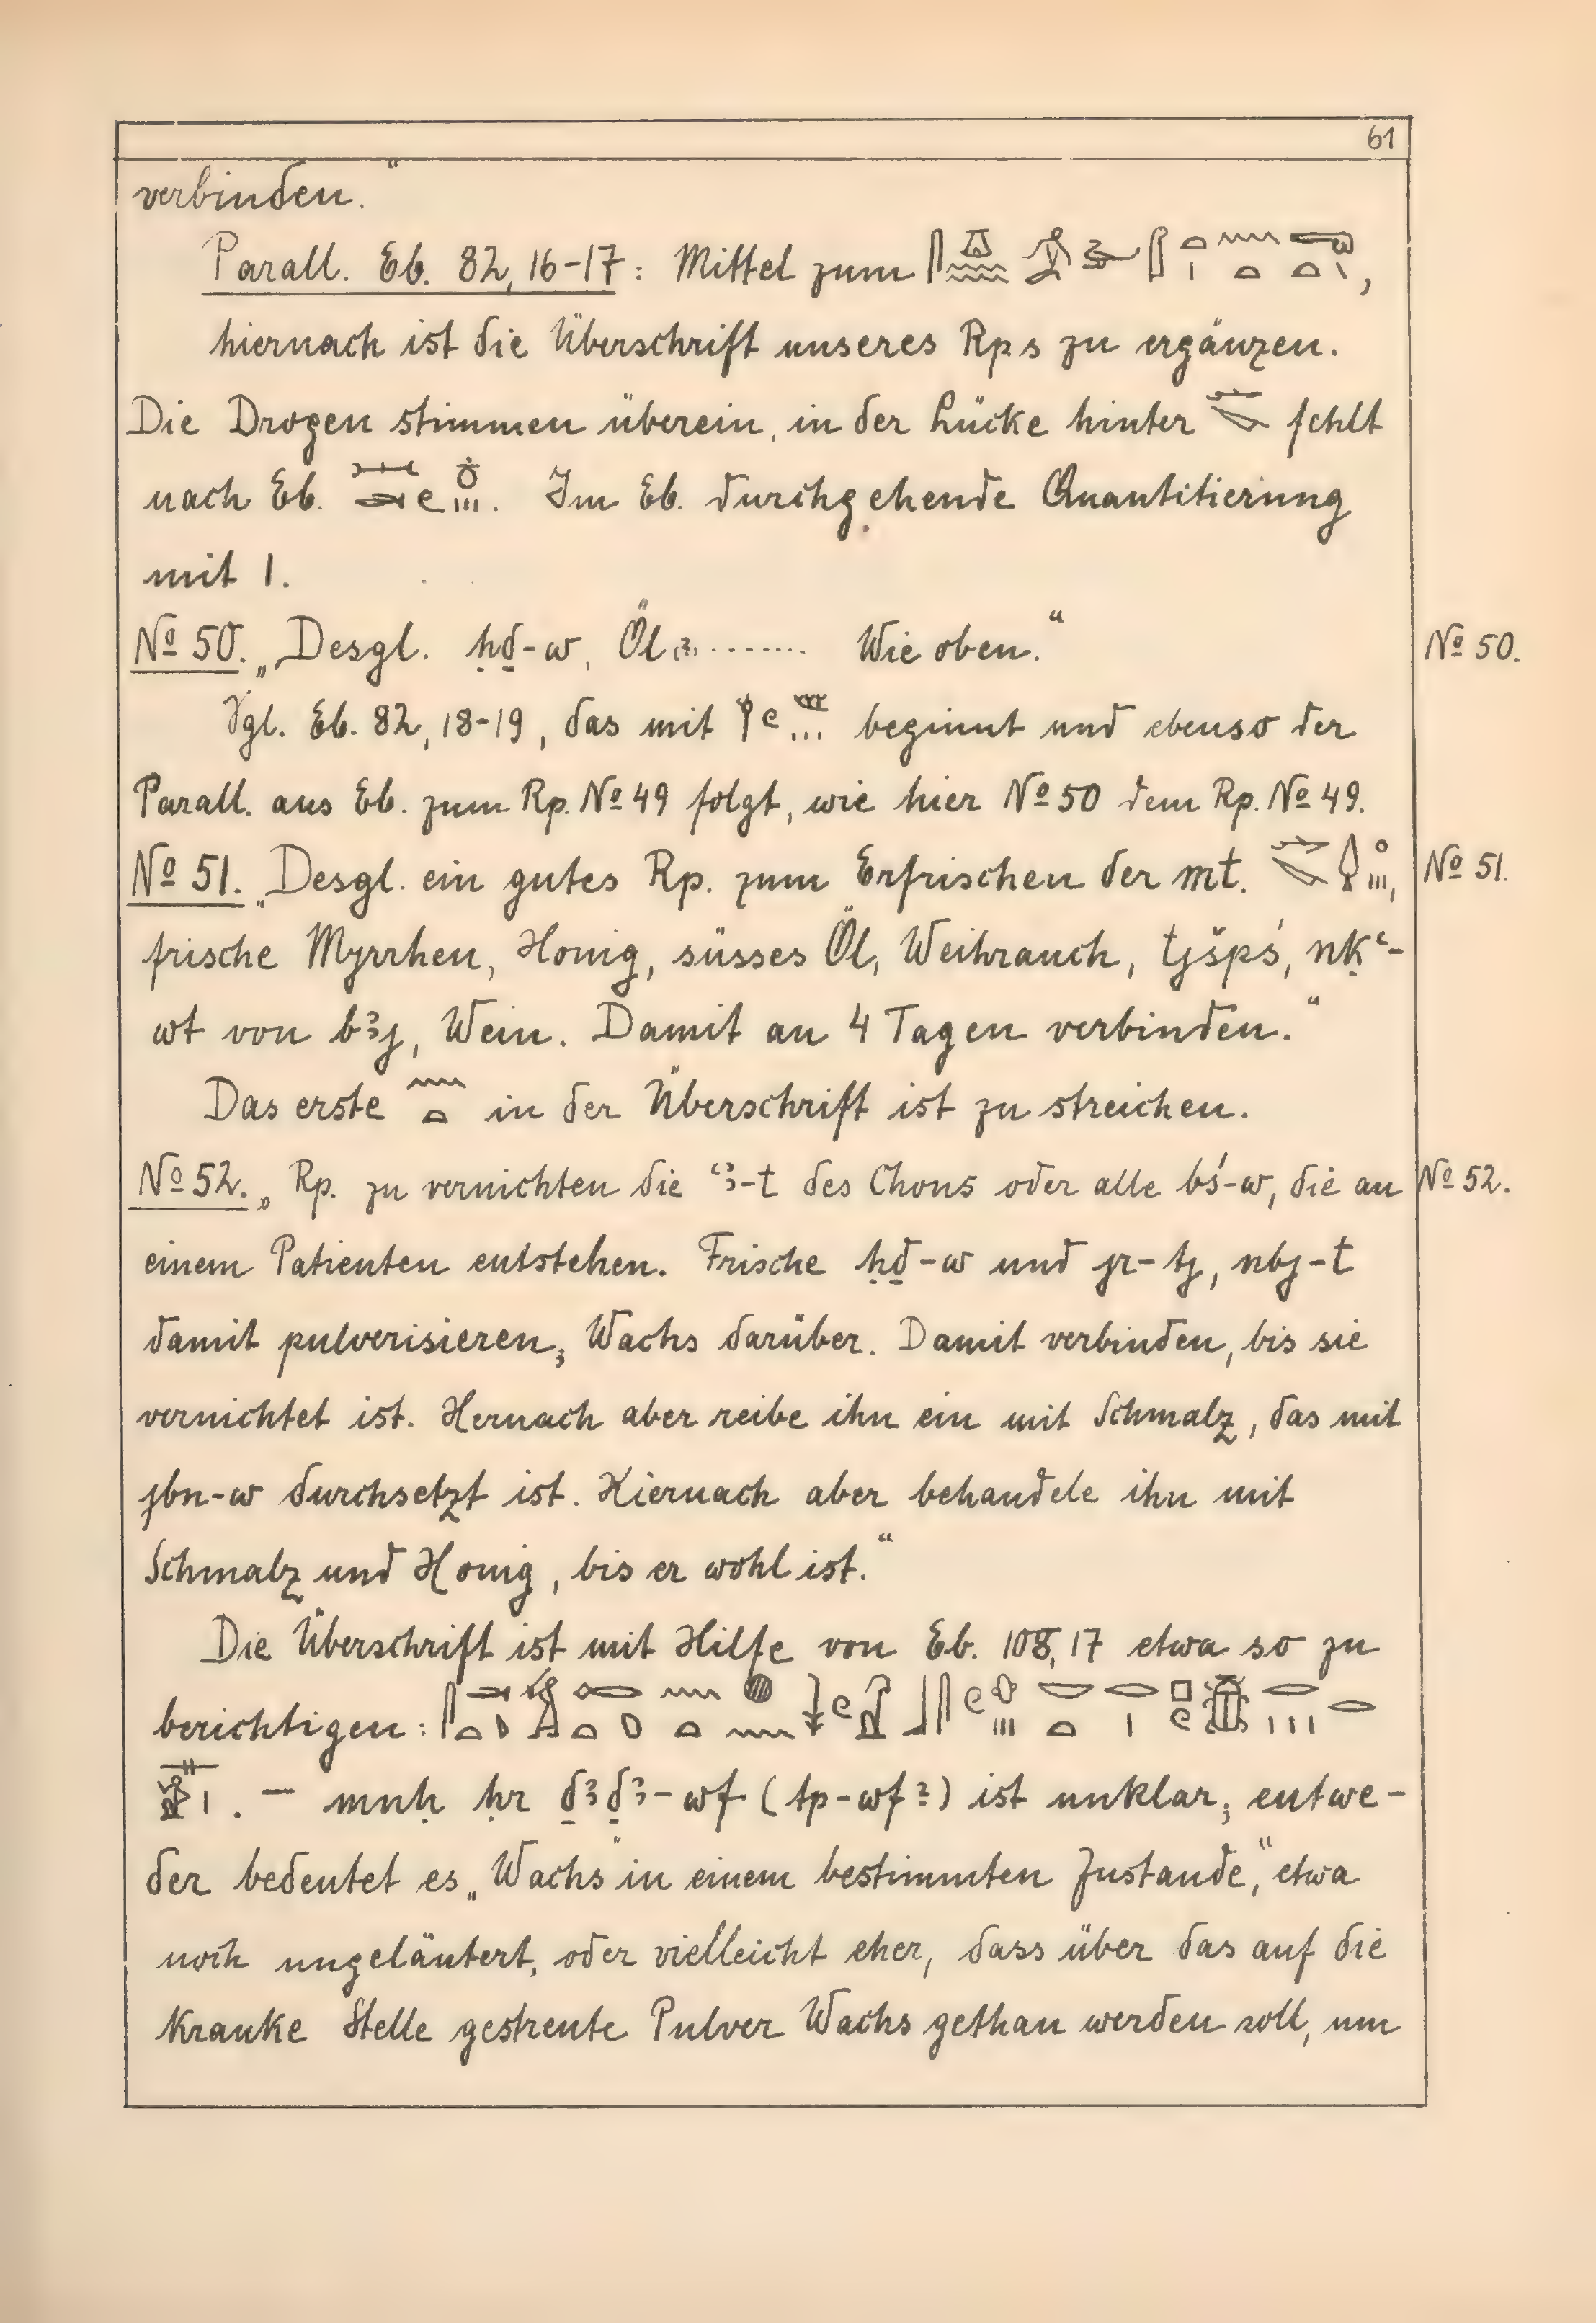 61
verbinden.“
Parall. Eb. 82,16-17: Mittel zum ,
hiernach ist die Überschrift unseres Rps zu ergänzen.
Die Drogen stimmen überein, in der Lücke hinter fehlt
nach Eb. . Im Eb. durchgehende Quantitierung
mit 1.
№ 50. „Desgl. ḥḏ-w, Öl ........ Wie oben.“ № 50.
Vgl. Eb. 82,18-19, das mit beginnt und ebenso der
Parall. aus Eb. zum Rp. № 49 folgt, wie hier № 50 dem Rp. № 49.
№ 51. „Desgl. ein gutes Rp. zum Erfrischen der mt. , № 51.
frische Myrrhen, Honig, süsses Öl, Weihrauch, tjšpś, nḳꜥ-
wt von bꜣj, Wein. Damit an 4 Tagen verbinden.“
Das erste in der Überschrift ist zu streichen.
№ 52. „Rp. zu vernichten die ꜥꜣ-t des Chons oder alle bś-w, die an № 52.
einem Patienten entstehen. Frische ḥḏ-w und jr-tj, nbj-t
damit pulverisieren; Wachs darüber. Damit verbinden, bis sie
vernichtet ist. Hernach aber reibe ihn ein mit Schmalz, das mit
jbn-w durchsetzt ist. Hiernach aber behandele ihn mit
Schmalz und Honig, bis er wohl ist.“
Die Überschrift ist mit Hilfe von Eb. 108,17 etwa so zu
berichtigen:
. — mnḥ ḥr ḏꜣḏꜣ-wf (tp-wf?) ist unklar; entwe-
der bedeutet es „Wachs“ in einem bestimmten Zustande,“ etwa
noch ungeläutert, oder vielleicht eher, dass über das auf die
kranke Stelle gestreute Pulver Wachs gethan werden soll, um